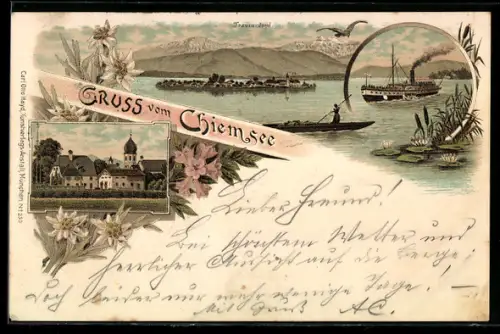 Fraueninsel
GRUSS vom Chiemsee
Carl Otto Hayd, Kunstverlags-Anstalt, München Nº 250
Lieber Freund!
Bei schönstem Wetter und
herrlicher Aussicht auf die Berge;
Doch leider nur mehr wenige Tage. —
Mit Gruß AC.